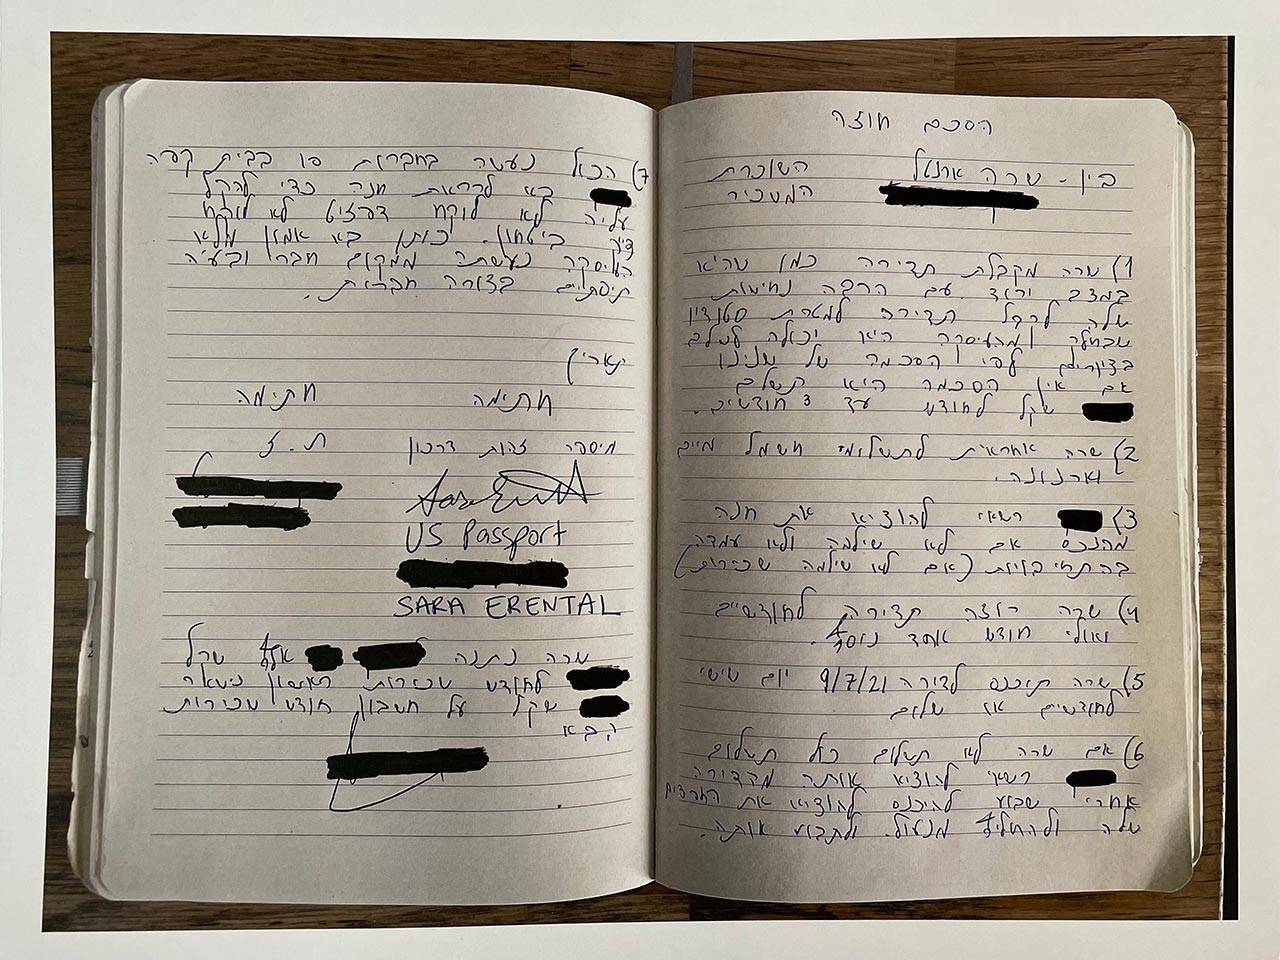 הסכם חוזה
בין - שרה ארנטל השוכרת
המשכיר
1) שרה מקבלת הדירה כמו שהיא
במצב ירוד עם הרבה נחישות
שלה לקבל הדירה למטרת סטודיו
שבחלק ומהעיסקה היא יכולה לשלם
בציורים לפי הסכמה של שנינו
אם אין הסכמה היא תשלם
שקל לחודש עד 3 חודשים.
2) שרה אחראית לתשלומי חשמל מיים
וארנונה.
3) רשאי להוציא את חנה
מהנכס אם לא שילמה ולא עמדה
בהתחיבויות (אם לא שילמה שכירות)
4) שרה רוצה הדירה לחודשיים
ואולי חודש אחד נוסף.
5) שרה תיכנס לדירה 9/7/21 יום שישי
לחודשיים או שלוש
6) אם שרה לא תשלום כל תשלום
רשאי להוציא אותה מהדירה
אחרי שבוע להיכנס להוציא את החפצים
שלה ולהחליף מנעול. ולתבוע אותה.
7) הכול נעשה בחברות פו בבית קפה
בא לקראת חנה כדי להקל
עליה ולא לוקח דפוזיט לא לוקח
צ'ק ביטחון. נותן בא אמון מלא
העיסקה נעשתה ממקום חברי ובע"ה
תיסתיים בצורה חברית.
תאריך
חתימה חתימה
מיספר זהות דרכון ת.ז
US Passport
SARA ERENTAL
שרה נתנה אלף שקל
לחודש שכירות ראשון נישאר
שקל על חשבון חודש שכירות
הבא